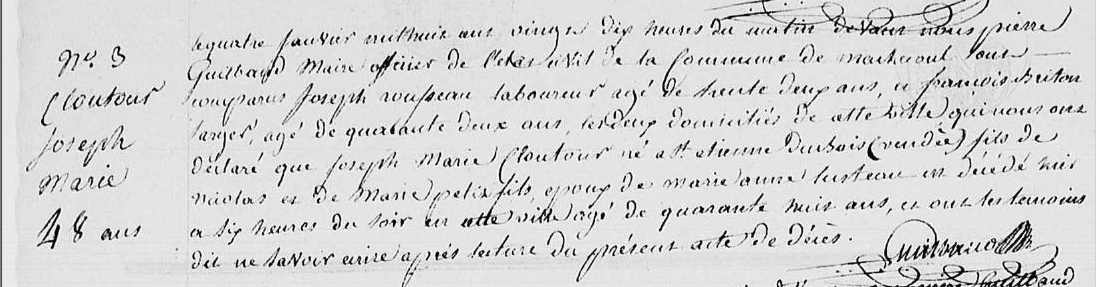 No. 3
Cloutour
Joseph
Marie
48 ans
le quatre Janvier mil huit cent vingt dix heures du matin devant nous pierre
Guilbaud Maire officier de l'etat civil de la Commune de machecoul sont
comparus Joseph rousseau laboureur agé de trente deux ans, et françois Briton
targer, agé de quarante deux ans, les deux domiciliés de cette ville qui nous ont
déclaré que Joseph Marie Cloutour né a St. etienne Dubois (vendée) fils de
nicolas et de Marie petit fils, epoux de marie anne lusteau est décédé hier
a six heures du soir en cette ville agé de quarante huit ans, et ont les temoins
dit ne savoir ecrire aprés lecture du présent acte de décès.
Guilbaud